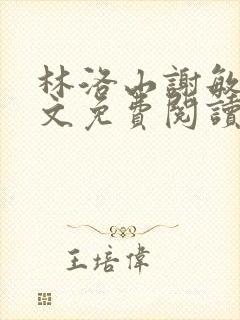 林洛山謝敏
文免費閱讀
王培偉